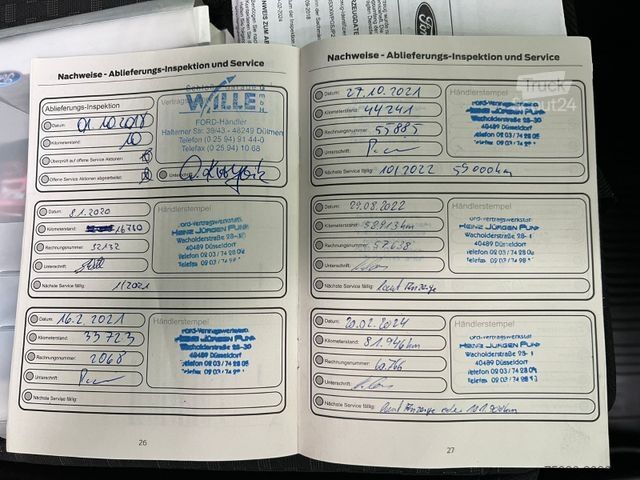 Nachweise - Ablieferungs-Inspektion und Service
Ablieferungs-Inspektion
Datum: 01.10.2018
Kilometerstand: 10
Überprüft auf offene Service Aktionen
Offene Service Aktionen abgearbeitet
WILLE
FORD-Händler
Halterner Str. 39/43 - 48249 Dülmen
Telefon (0 25 94) 91 44-0
Telefax (0 25 94) 10 68
Datum: 8.1.2020
Kilometerstand: 16780
Rechnungsnummer: 52132
Unterschrift:
Nächste Service fällig: 1/2021
Händlerstempel
Ford-Vertragswerkstatt
HEINZ JÜRGEN FUNK
Wacholderstraße
40489 Düsseldorf
Telefon 02 03 / 74 28 05
Telefax 02 03 / 74 29
Datum: 16.2.2021
Kilometerstand: 33723
Rechnungsnummer: 2068
Unterschrift:
Nächste Service fällig:
Händlerstempel
Ford-Vertragswerkstatt
HEINZ JÜRGEN FUNK
Wacholderstraße 28-30
40489 Düsseldorf
Telefon 02 03 / 74 28 05
Telefax 02 03 / 74 29
26
Nachweise - Ablieferungs-Inspektion und Service
Datum: 27.10.2021
Kilometerstand: 44241
Rechnungsnummer: 55885
Unterschrift:
Nächste Service fällig: 10/2022 59000km
Händlerstempel
Ford-Vertragswerkstatt
HEINZ JÜRGEN FUNK
Wacholderstraße 28-30
40489 Düsseldorf
Telefon 02 03 / 74 28 05
Telefax 02 03 / 74 29
Datum: 29.08.2022
Kilometerstand: 58913km
Rechnungsnummer: 57638
Unterschrift:
Nächste Service fällig: laut Anzeige
Händlerstempel
Ford-Vertragswerkstatt
HEINZ JÜRGEN FUNK
Wacholderstraße
40489 Düsseldorf
Telefon 02 03 / 74 28 05
Telefax 02 03 / 74 29
Datum: 20.02.2024
Kilometerstand: 81.946km
Rechnungsnummer: 60766
Unterschrift:
Nächste Service fällig: laut Anzeige oder
Händlerstempel
Ford-Vertragswerkstatt
HEINZ JÜRGEN FUNK
Wacholderstraße 28-30
40489 Düsseldorf
Telefon 02 03 / 74 28
Telefax 02 03 / 74 29
27
Truck
out24
Ford